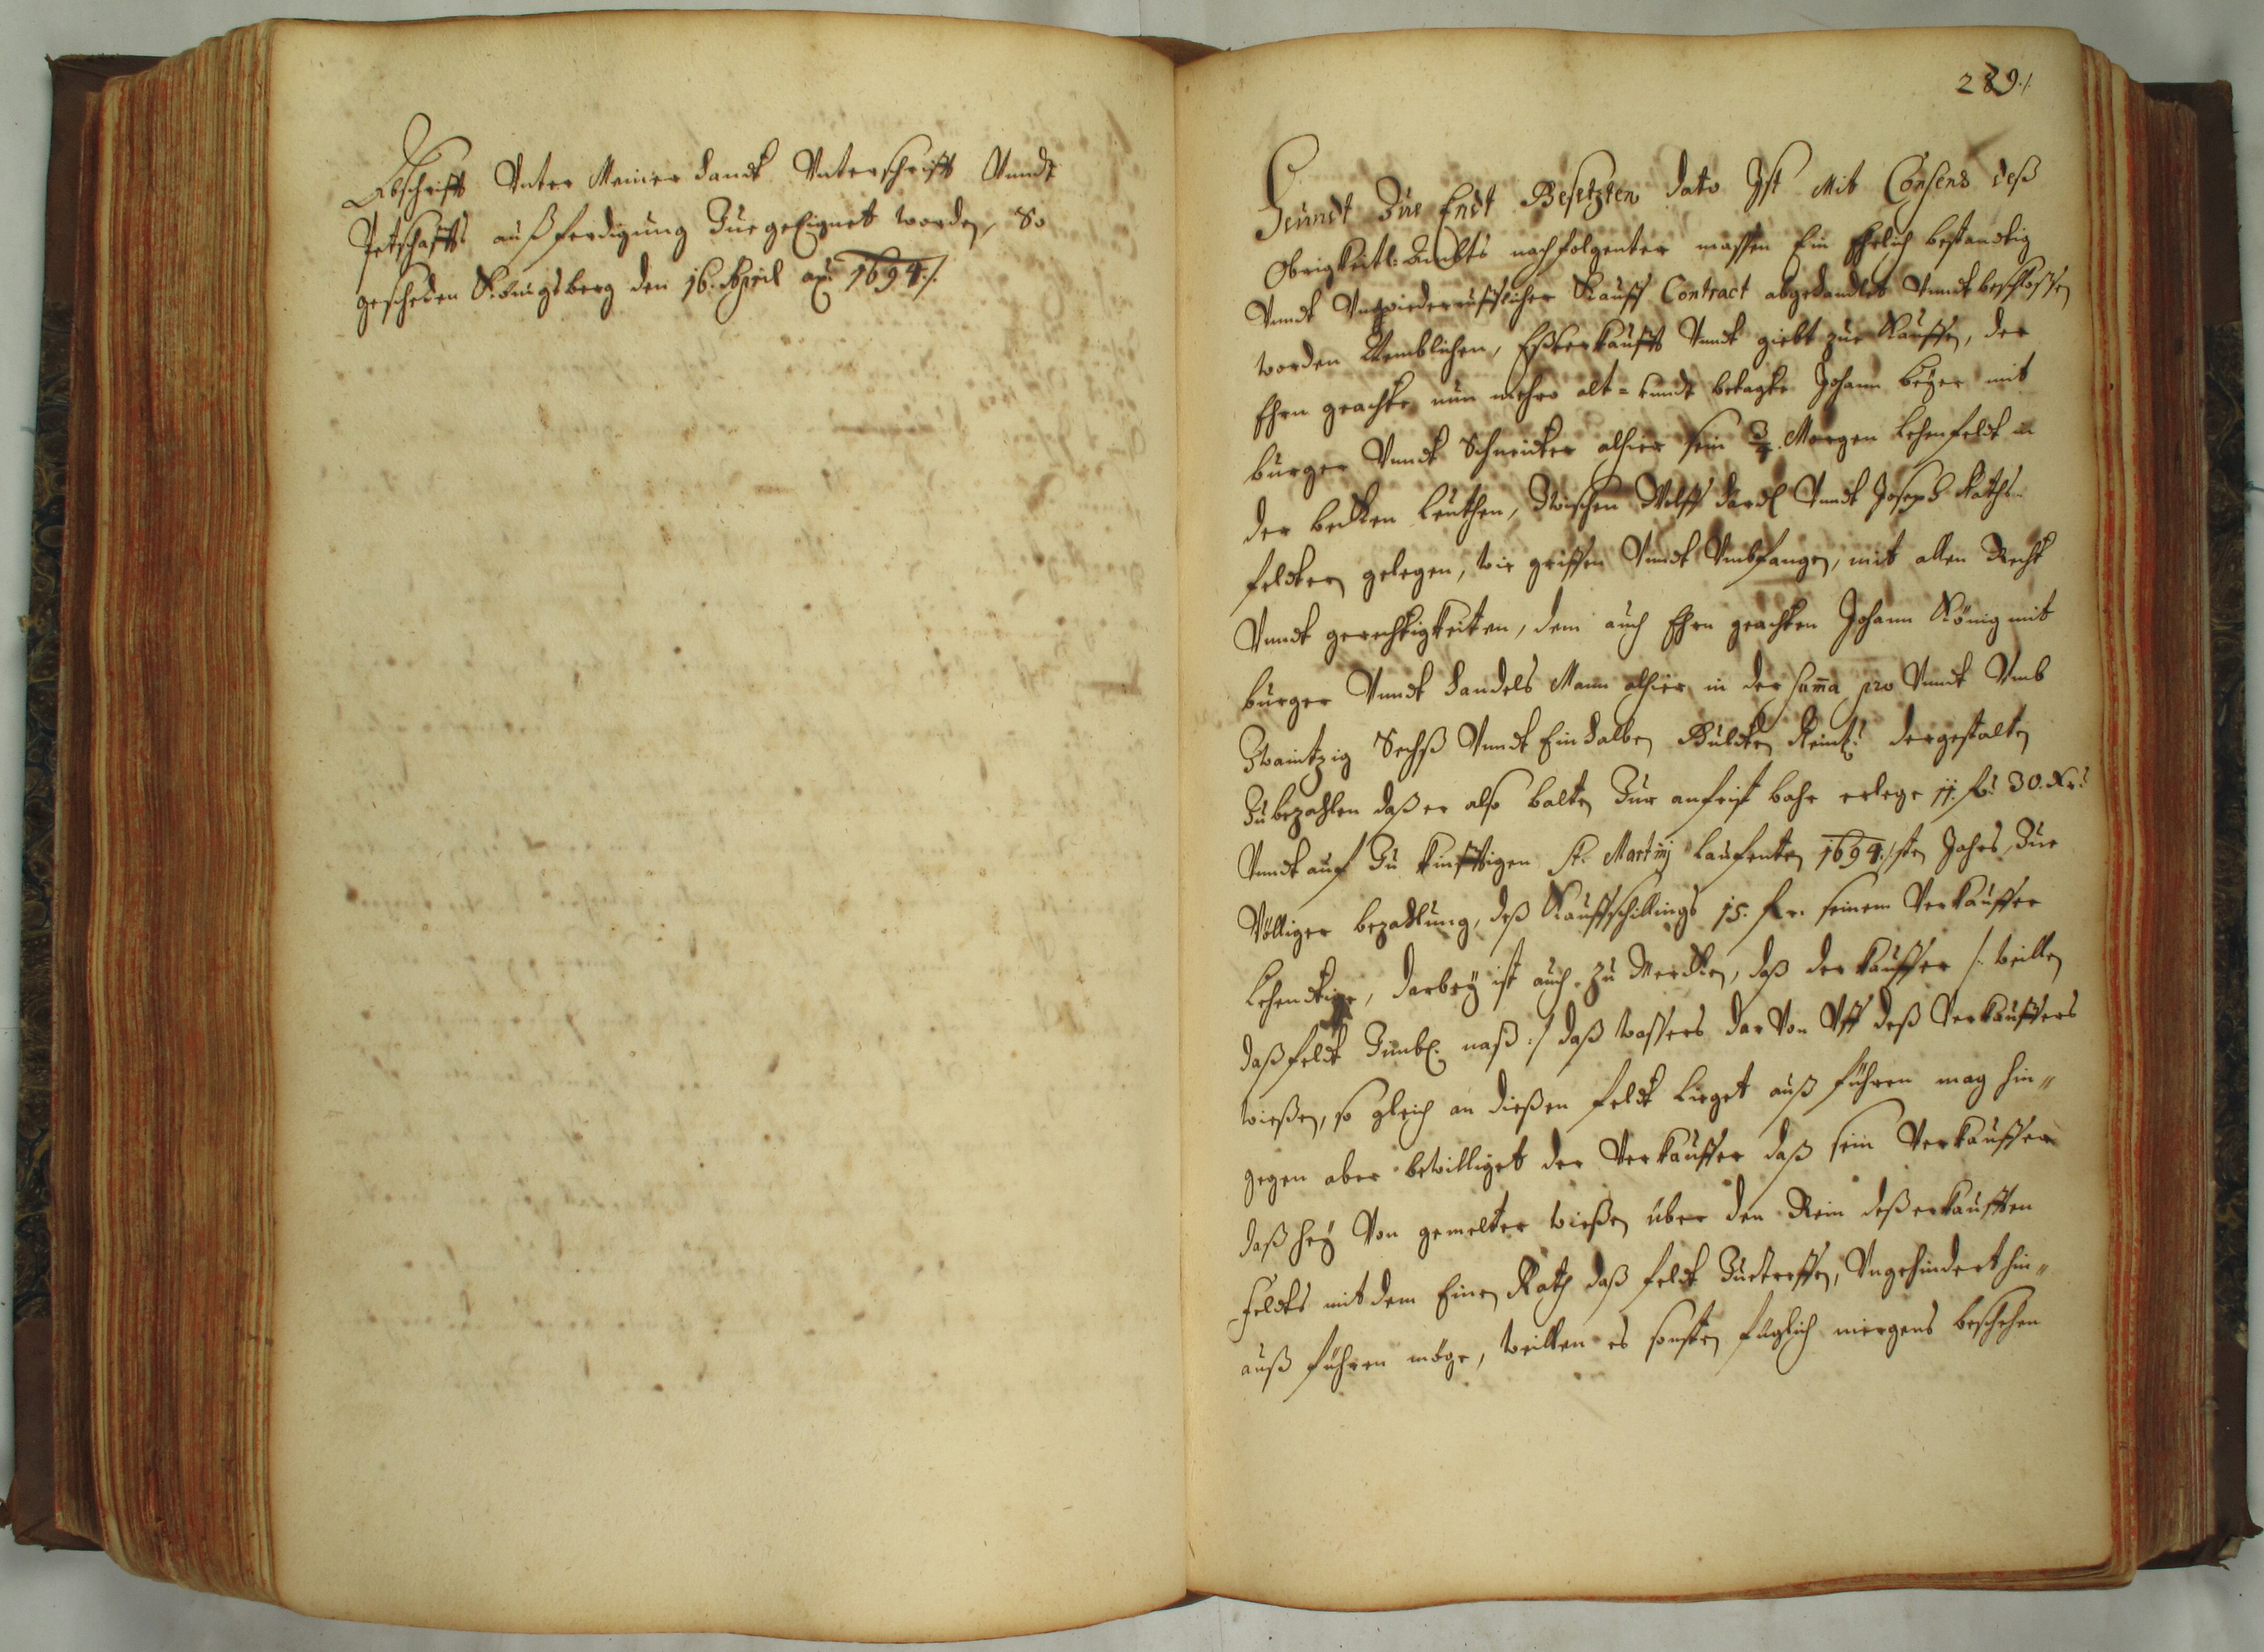 Abschrifft Vnter Meiner Handt Vnterschrifft Vnndt
Petschaffts außferdigung Zue geEignet worden, So
geschehen Königsberg den 16. April aõ 1694./.
289./.
Heundt Zue Endt Besetzten dato Ist Mit Consens deß
Obrigkeitl: Ambts nachfolgenter massen Ein Ehrlich bestandtig
Vnndt Vnwiederrufflicher Kauff Contract abgehandlet Vnndt beschlossen
worden Nemblichen, Eß verkaufft Vnndt giebt zue Kauffen, der
Ehrn geachte nun mehro alt- vnndt betagte Johann Beyer mit
burger Vnndt Schneider alhier sein 3/4. Morgen Lehenfeldt in
der Leuthen, Zwischen Wolff Vnndt Joseph
feldern gelegen, wie griffen Vnndt Vmbfangen, mit allen Recht
Vnndt gerechtigkeiten, dem auch Ehrn geachten Johann König mit
burger Vnndt Handels Mann alhier in der Suma pro Vnndt Vmb
Zwaintzig Sechß Vnndt Ein Halben Gulden Reinl: dergestalten
Zu bezahlen daß er also balten Zur anfrist bahr erlege 11. fl: 30. Kr:
Vnndt auf Zu Künfftigen St. Martinj Laufenten 1694./sten Jahrs, Zue
Völliger bezahlung, deß Kauffschillings 15. fl. seinem Verkauffer
, darbey ist auch zu Mercken, daß der Kauffer /: weillen
daß feldt Zimbl. naß :/ daß wassers dar Von Vff deß Verkauffers
wießen, so gleich an dießen feldt Lieget auß führen mag hin„
gegen aber bewilliget der Verkauffer daß sein Verkauffer
daß Hey Von gemelter wießen über den Rein deß erkaufften
Feldts mit dem Einen Rath daß feldt Zuetreffen, Vngehindert hin„
auß führen möge, weillen es sonsten füglich niergends beschehen